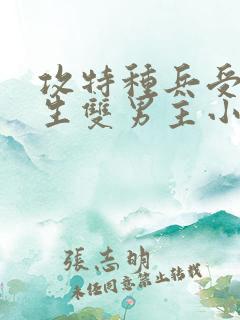 攻特種兵受
生雙男主小
張志明
未任同意禁止转载